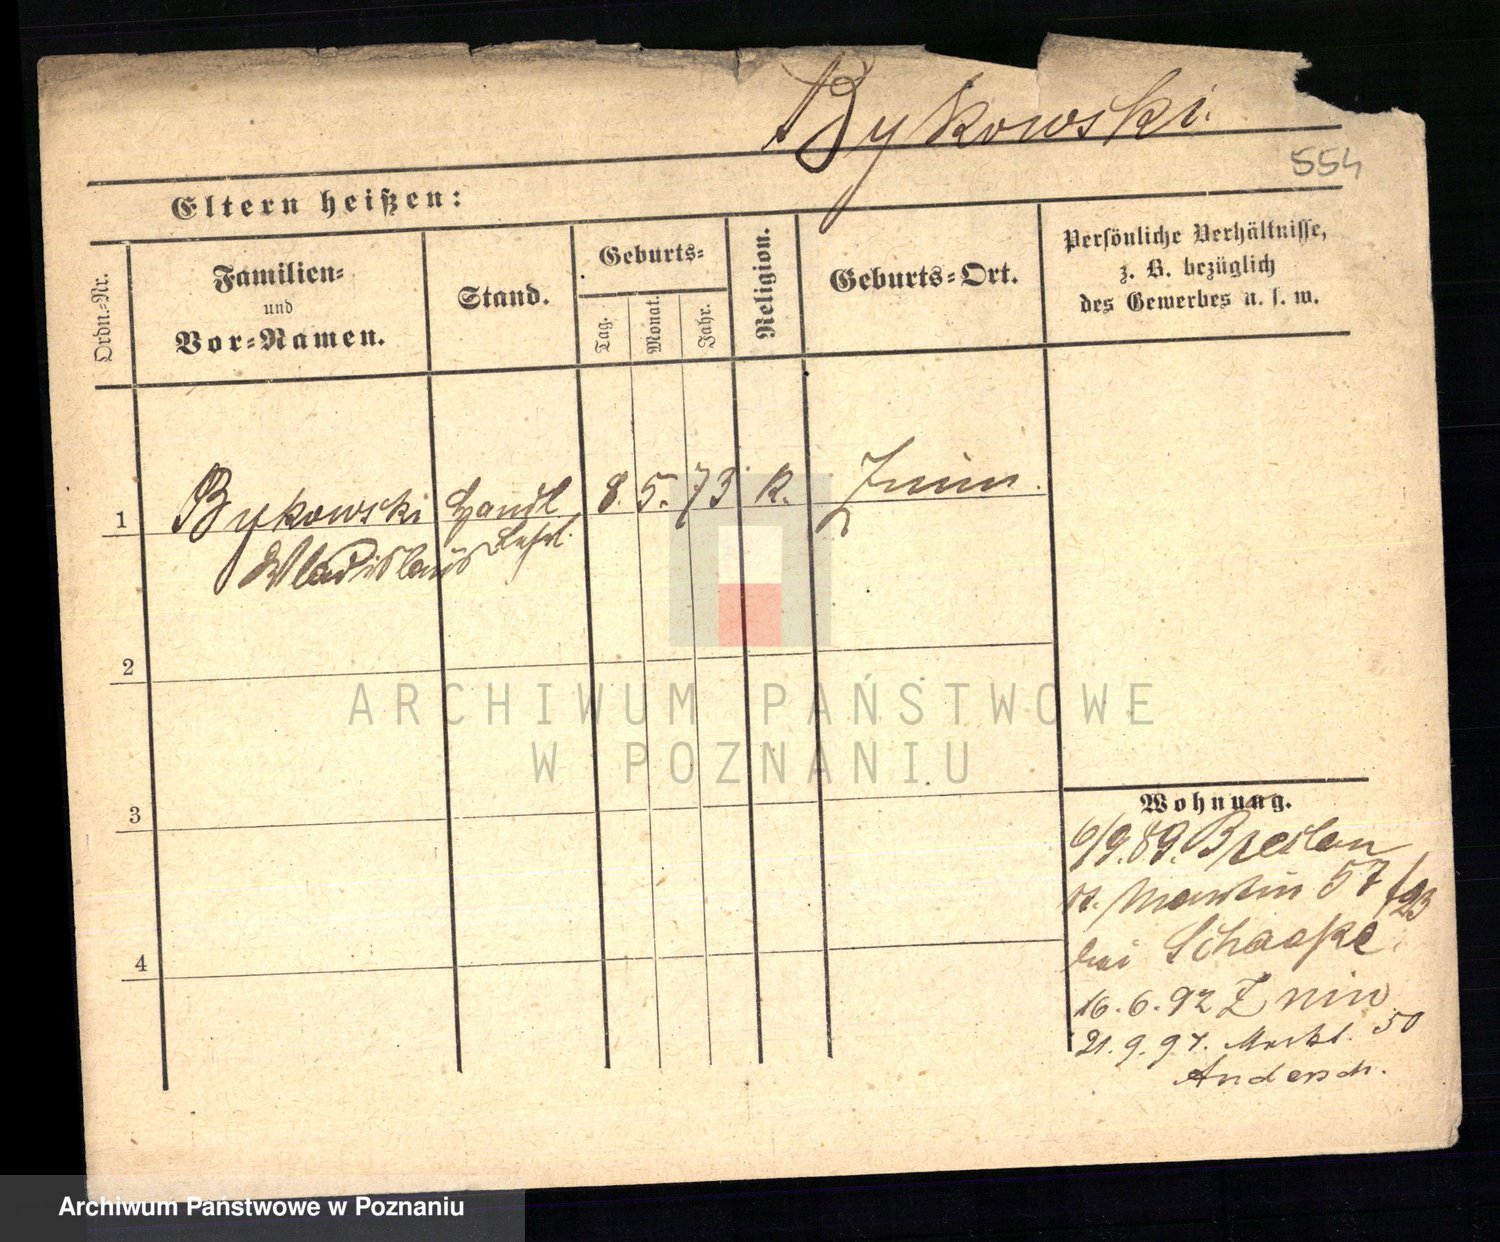 Bykowski.
554
Eltern heißen:
Ordn.-Nr.
Familien-
und
Vor-Namen.
Stand.
Geburts-
Tag.
Monat.
Jahr.
Religion.
Geburts-Ort.
Persönliche Verhältnisse,
z. B. bezüglich
des Gewerbes u. s. w.
1 Bykowski Handl 8. 5. 73 k. Znin.
Wladislaus Lehrl.
2
3
4
ARCHIWUM PAŃSTWOWE
W POZNANIU
Wohnung.
6/9.89. Breslau
St. Martin 57
bei Schaapke
16.6.92 Znin
21.9.97. Markt. 50
Andersch.
Archiwum Państwowe w Poznaniu